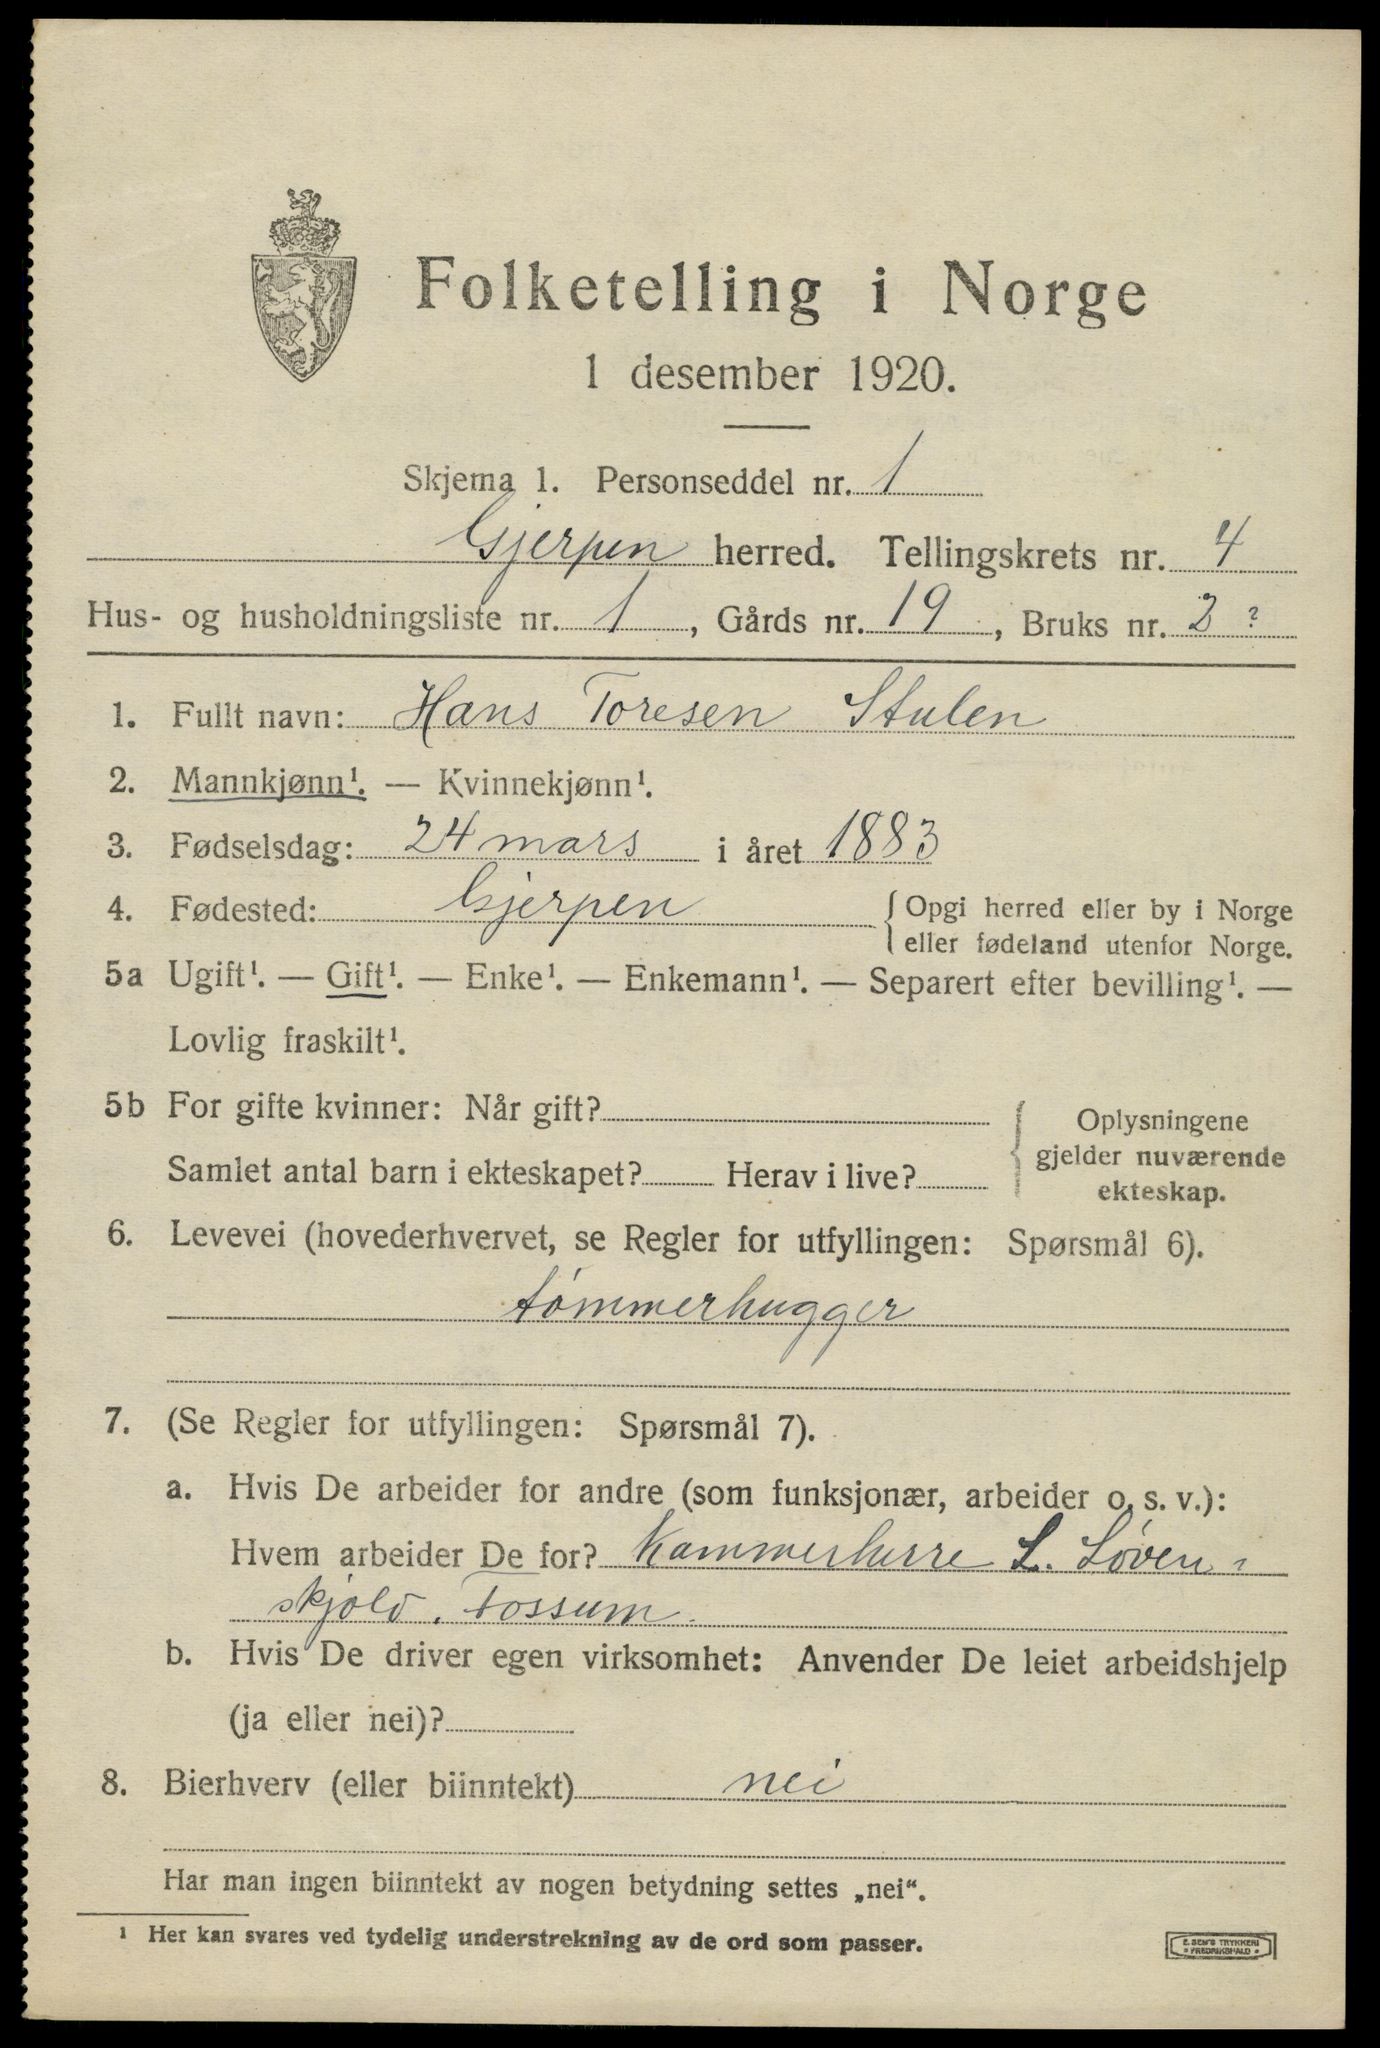 Folketelling i Norge
1 desember 1920.
Skjema 1. Personseddel nr. 1
Gjerpen herred. Tellingskrets nr. 4
Hus- og husholdningsliste nr. 1, Gårds nr. 19, Bruks nr. 2 ?
1. Fullt navn: Hans Toresen Stulen
2. Mannkjønn¹. — Kvinnekjønn¹.
3. Fødselsdag: 24 mars i året 1883
4. Fødested: Gjerpen { Opgi herred eller by i Norge
eller fødeland utenfor Norge.
5a Ugift¹. — Gift¹. — Enke¹. — Enkemann¹. — Separert efter bevilling¹. —
Lovlig fraskilt¹.
5b For gifte kvinner: Når gift?
Samlet antal barn i ekteskapet? Herav i live?
{ Oplysningene
gjelder nuværende
ekteskap.
6. Levevei (hovederhvervet, se Regler for utfyllingen: Spørsmål 6).
tömmerhugger
7. (Se Regler for utfyllingen: Spørsmål 7).
a. Hvis De arbeider for andre (som funksjonær, arbeider o. s. v.):
Hvem arbeider De for? Kammerherre L. Løven-
skjold. Fossum.
b. Hvis De driver egen virksomhet: Anvender De leiet arbeidshjelp
(ja eller nei)?
8. Bierhverv (eller biinntekt) nei
Har man ingen biinntekt av nogen betydning settes „nei“.
¹ Her kan svares ved tydelig understrekning av de ord som passer.
E. SEM'S TRYKKERI
• FREDRIKSHALD •